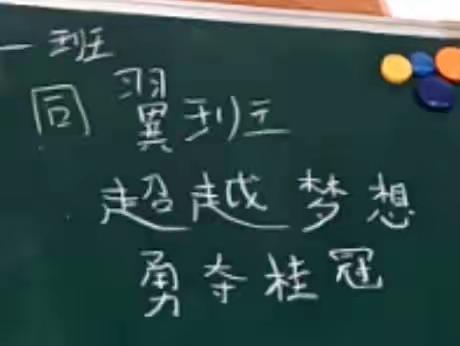 一班
同翼班
超越梦想
勇夺桂冠